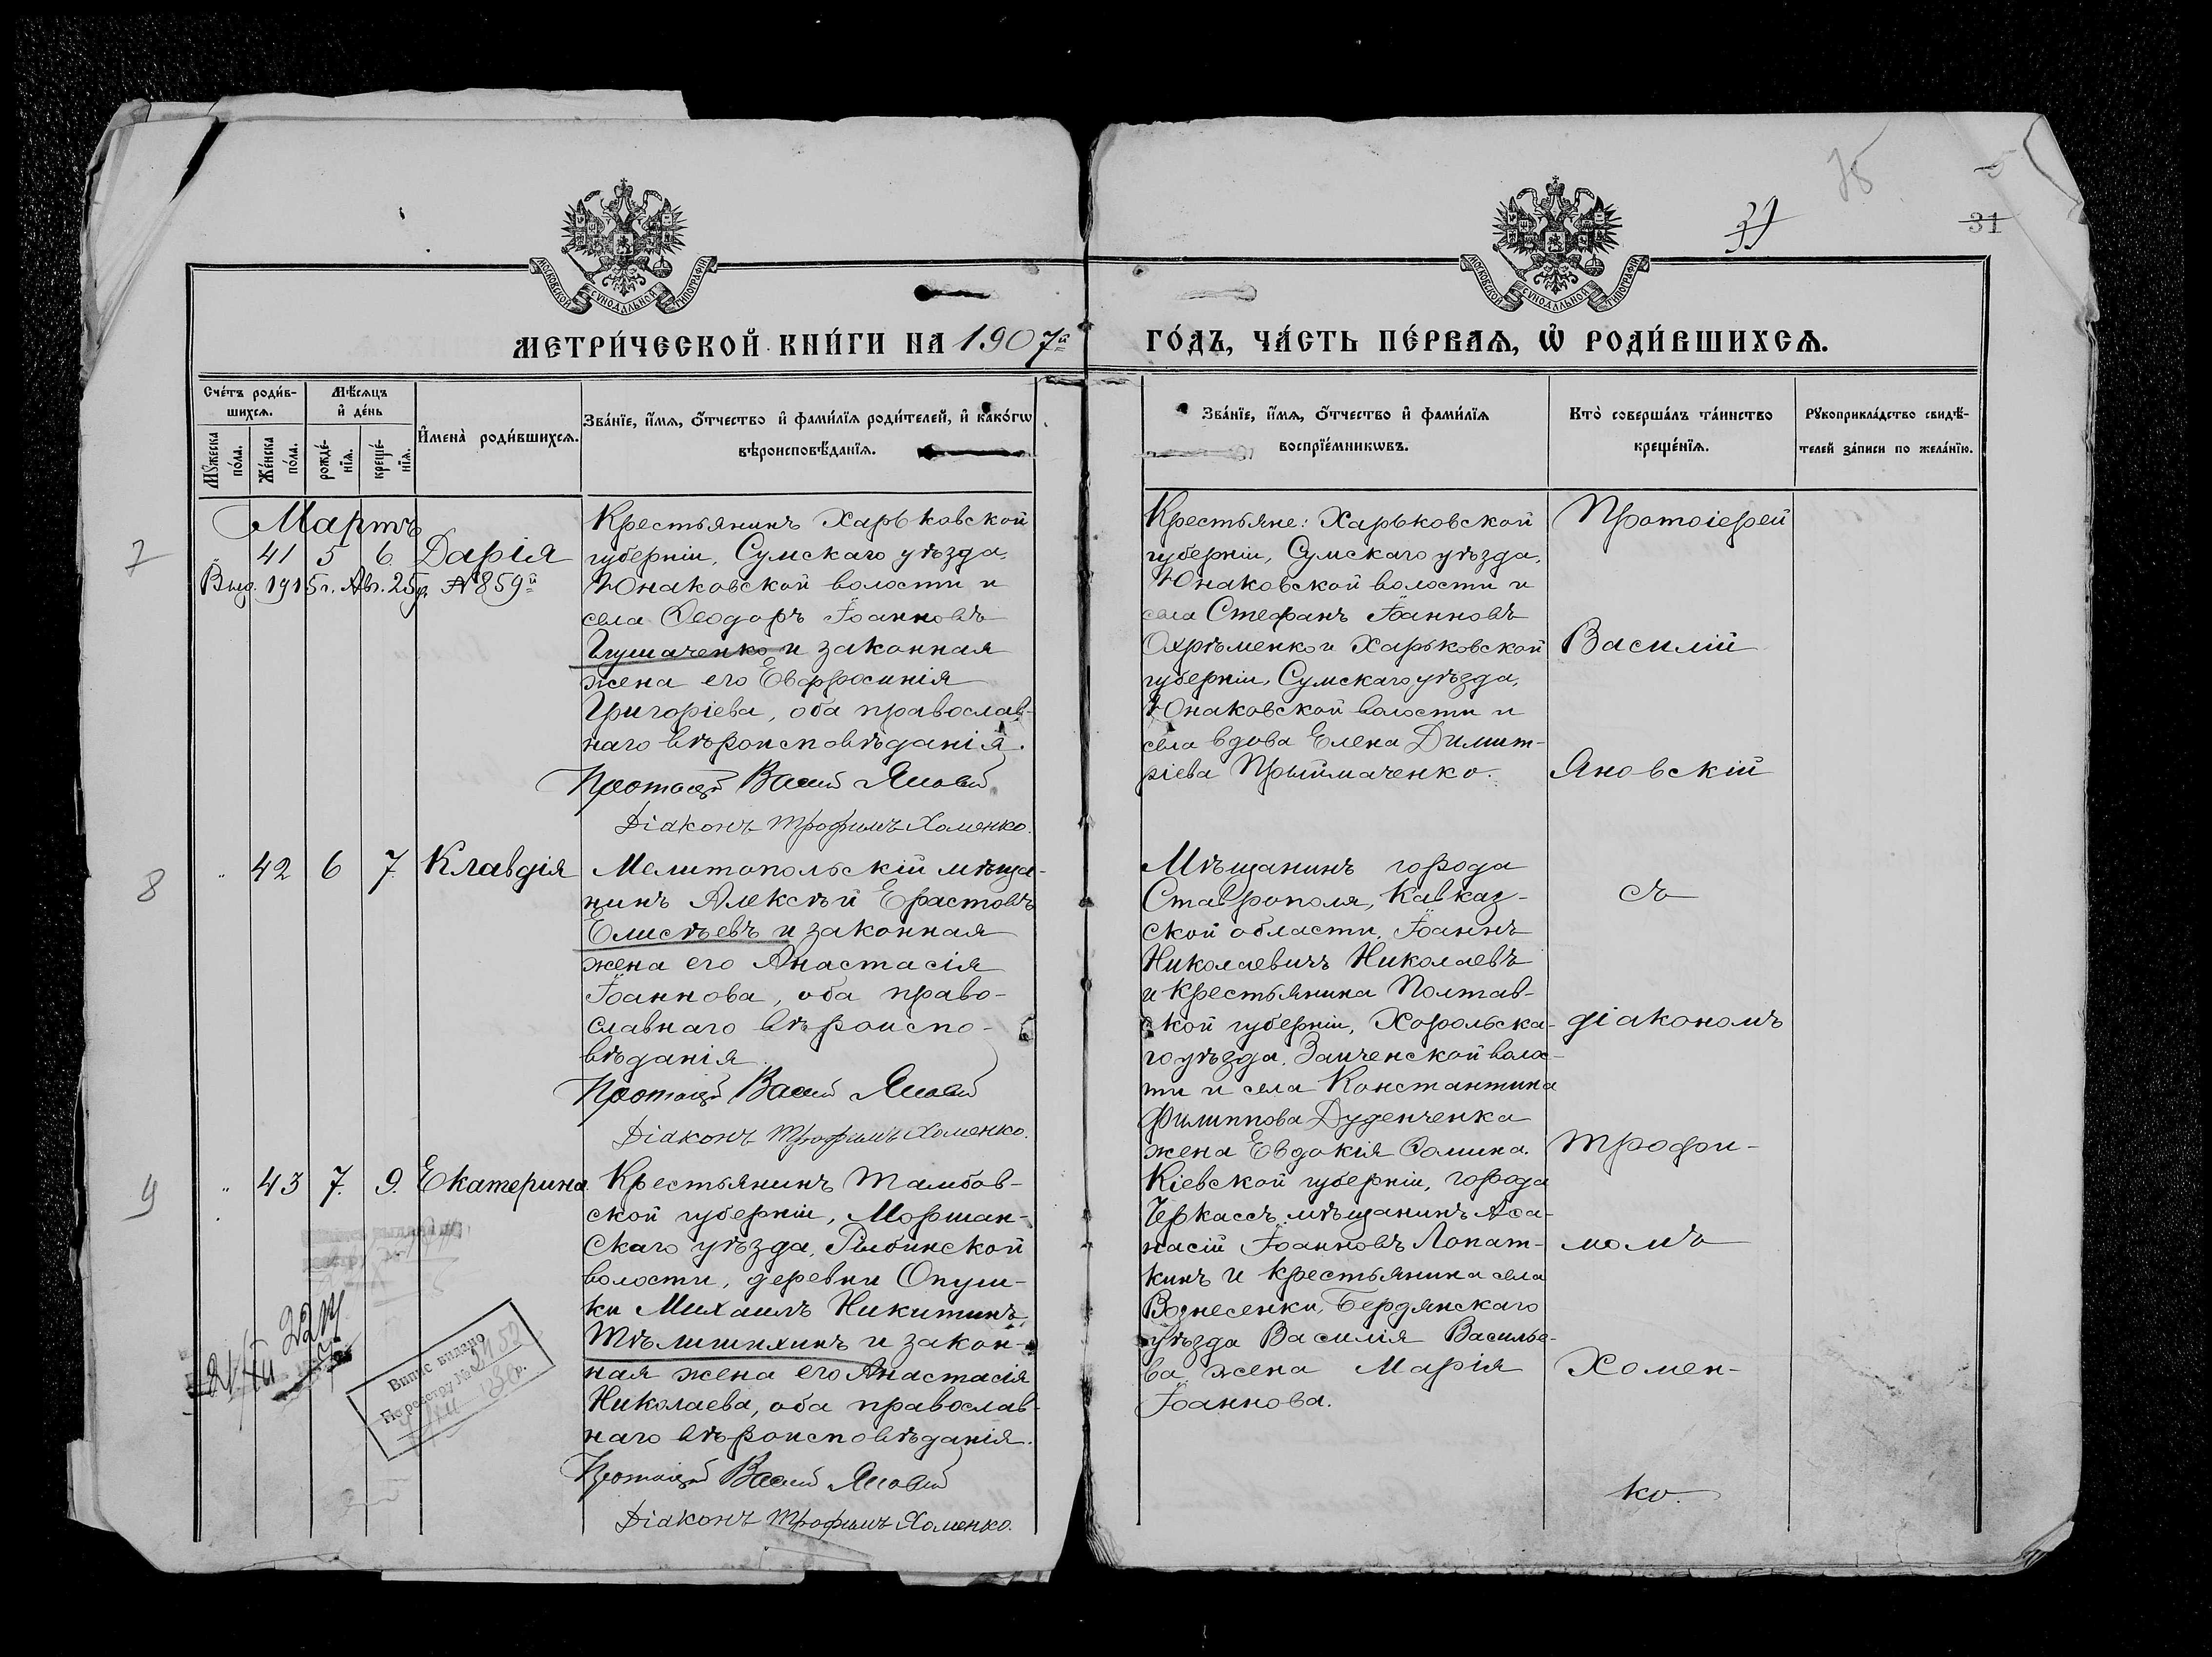 75
39
31
МОСКОВСКОЙ СУНОДАЛЬНОЙ ТИПОГРАФІИ
МОСКОВСКОЙ СУНОДАЛЬНОЙ ТИПОГРАФІИ
МЕТРИ́ЧЕСКОЙ КНИ́ГИ НА 1907й
ГО́ДЪ, ЧА́СТЬ ПЕ́РВАѦ, Ѡ҆ РОДИ́ВШИХСѦ.
Сче́тъ роди́в-
шихсѧ.
Мѣ́сѧцъ
и҆ де́нь
Мꙋ́жеска
по́ла.
Же́нска
по́ла.
рожде́-
нїѧ.
креще́-
нїѧ.
И҆мена̀ роди́вшихсѧ.
Зва́нїе, и҆́мѧ, ѻ҆́тчество и҆ фами́лїѧ роди́телей, и҆ како́гѡ
вѣроисповѣ́данїѧ.
Зва́нїе, и҆́мѧ, ѻ҆́тчество и҆ фами́лїѧ
воспрїе́мникѡвъ.
Кто̀ соверша́лъ та́инство
креще́нїѧ.
Рꙋкоприкла́дство свидѣ́-
телей за́писи по жела́нїю.
Мартъ
7
41 5 6 Дарія
Выд. 1915 г. Авг. 25 д. № 859й
Крестьянинъ Харьковской
губерніи, Сумскаго уѣзда,
Юнаковской волости и
села Ѳеодоръ Іоанновъ
Глушаченко и законная
жена его Евфросинія
Григоріева, оба православ-
наго вѣроисповѣданія.
Протоіерей Василій Яновскій
Діаконъ Трофимъ Хоменко.
Крестьяне: Харьковской
губерніи, Сумскаго уѣзда,
Юнаковской волости и
села Стефанъ Іоанновъ
Охрѣменко и Харьковской
губерніи, Сумскаго уѣзда,
Юнаковской волости и
села вдова Елена Димит-
ріева Прыймаченко.
Протоіерей
Василій
Яновскій
8
" 42 6 7. Клавдія
Мелитопольскій мѣща-
нинъ Алексѣй Ерастовъ
Елисѣевъ и законная
жена его Анастасія
Іоаннова, оба право-
славнаго вѣроиспо-
вѣданія.
Протоіерей Василій Яновскій
Діаконъ Трофимъ Хоменко.
Мѣщанинъ города
Ставрополя, Кавказ-
ской области, Іоаннъ
Николаевичъ Николаевъ
и крестьянина Полтав-
ской губерніи, Хорольска-
го уѣзда, Заиченской волос-
ти и села Константина
Филиппова Дуденченка
жена Евдокія Ѳомина.
съ
діакономъ
Трофи-
9
" 43 7. 9. Екатерина.
Крестьянинъ Тамбов-
ской губерніи, Моршан-
скаго уѣзда, Рыбинской
волости, деревни Опуш-
ки Михаилъ Никитинъ
Тѣлишихинъ и закон-
ная жена его Анастасія
Николаева, оба православ-
наго вѣроисповѣданія.
Протоіерей Василій Яновскій
Діаконъ Трофимъ Хоменко.
Кіевской губерніи, города
Черкассъ, мѣщанинъ Аѳа-
насій Іоанновъ Лопат-
кинъ и крестьянина села
Вознесенки, Бердянскаго
уѣзда Василія Василье-
ва жена Марія
Іоаннова.
момъ
Хомен-
ко.
Випис видано
По реєстру №